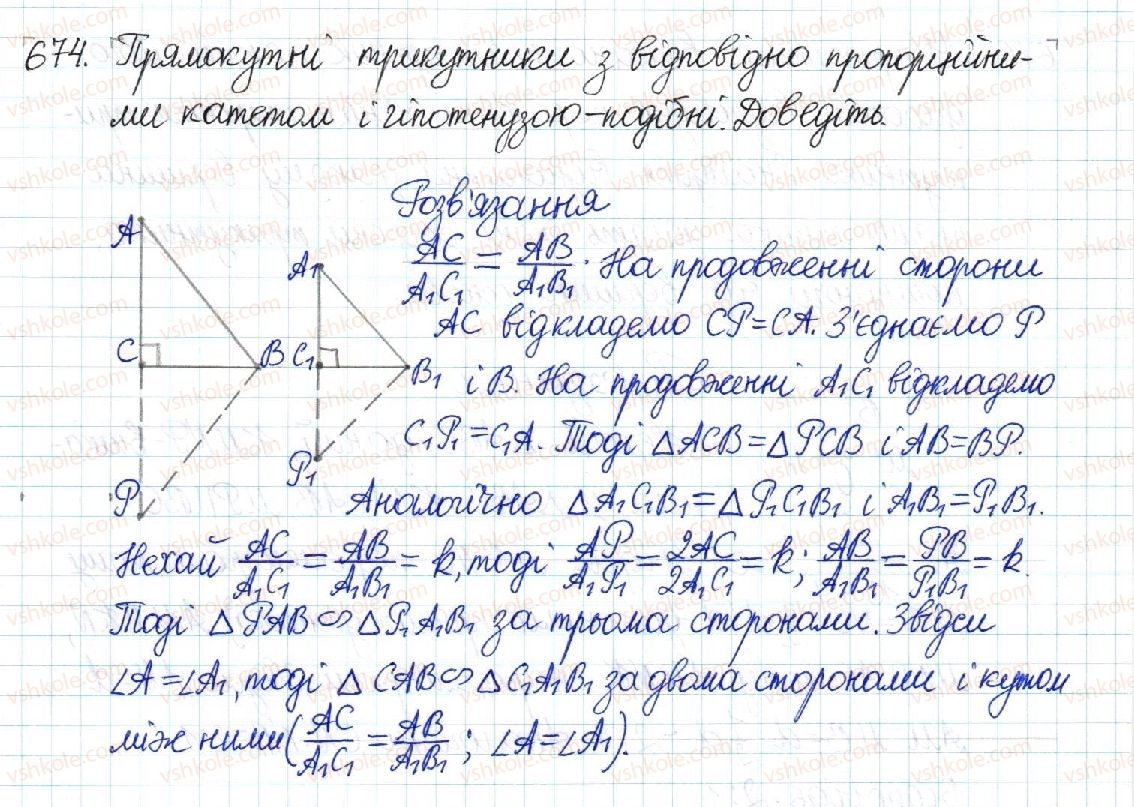 674. Прямокутні трикутники з відповідно пропорційни-
ми катетом і гіпотенузою – подібні. Доведіть.
Розв'язання
AC/A₁C₁ = AB/A₁B₁. На продовженні сторони
AC відкладемо CP=CA. З'єднаємо P
і B. На продовженні A₁C₁ відкладемо
C₁P₁=C₁A. Тоді △ACB=△PCB і AB=BP.
Аналогічно △A₁C₁B₁=△P₁C₁B₁ і A₁B₁=P₁B₁.
Нехай AC/A₁C₁ = AB/A₁B₁ = k, тоді AP/A₁P₁ = 2AC/2A₁C₁ = k; AB/A₁B₁ = PB/P₁B₁ = k.
Тоді △PAB ∽ △P₁A₁B₁ за трьома сторонами. Звідси
∠A=∠A₁, тоді △CAB ∽ △C₁A₁B₁ за двома сторонами і кутом
між ними (AC/A₁C₁ = AB/A₁B₁; ∠A=∠A₁).
A
C
B
P
A₁
C₁
B₁
P₁
vshkole.com